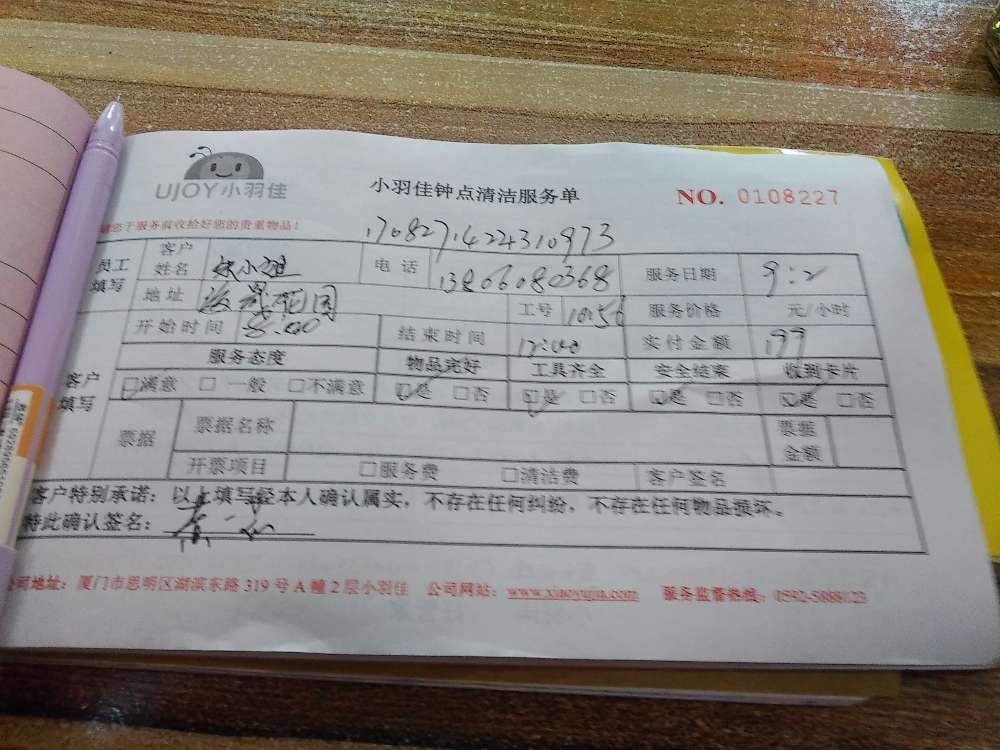 UJOY小羽佳
小羽佳钟点清洁服务单 NO. 0108227
您于服务前收拾好您的贵重物品！
1708271424310973
员工填写 客户姓名 小 电话 13806080368 服务日期 9:2
地址 海晟花园 工号 1056 服务价格 元/小时
客户填写 开始时间 8:00 结束时间 12:00 实付金额 199
服务态度 物品完好 工具齐全 安全结束 收到卡片
□满意 □一般 □不满意 □是 □否 □是 □否 □是 □否 □是 □否
票据 票据名称 票据金额
开票项目 □服务费 □清洁费 客户签名
客户特别承诺：以上填写经本人确认属实，不存在任何纠纷，不存在任何物品损坏。
特此确认签名：
公司地址：厦门市思明区湖滨东路319号A幢2层小羽佳 公司网站：www.xiaoyujia.com 服务监督热线：0592-5888123